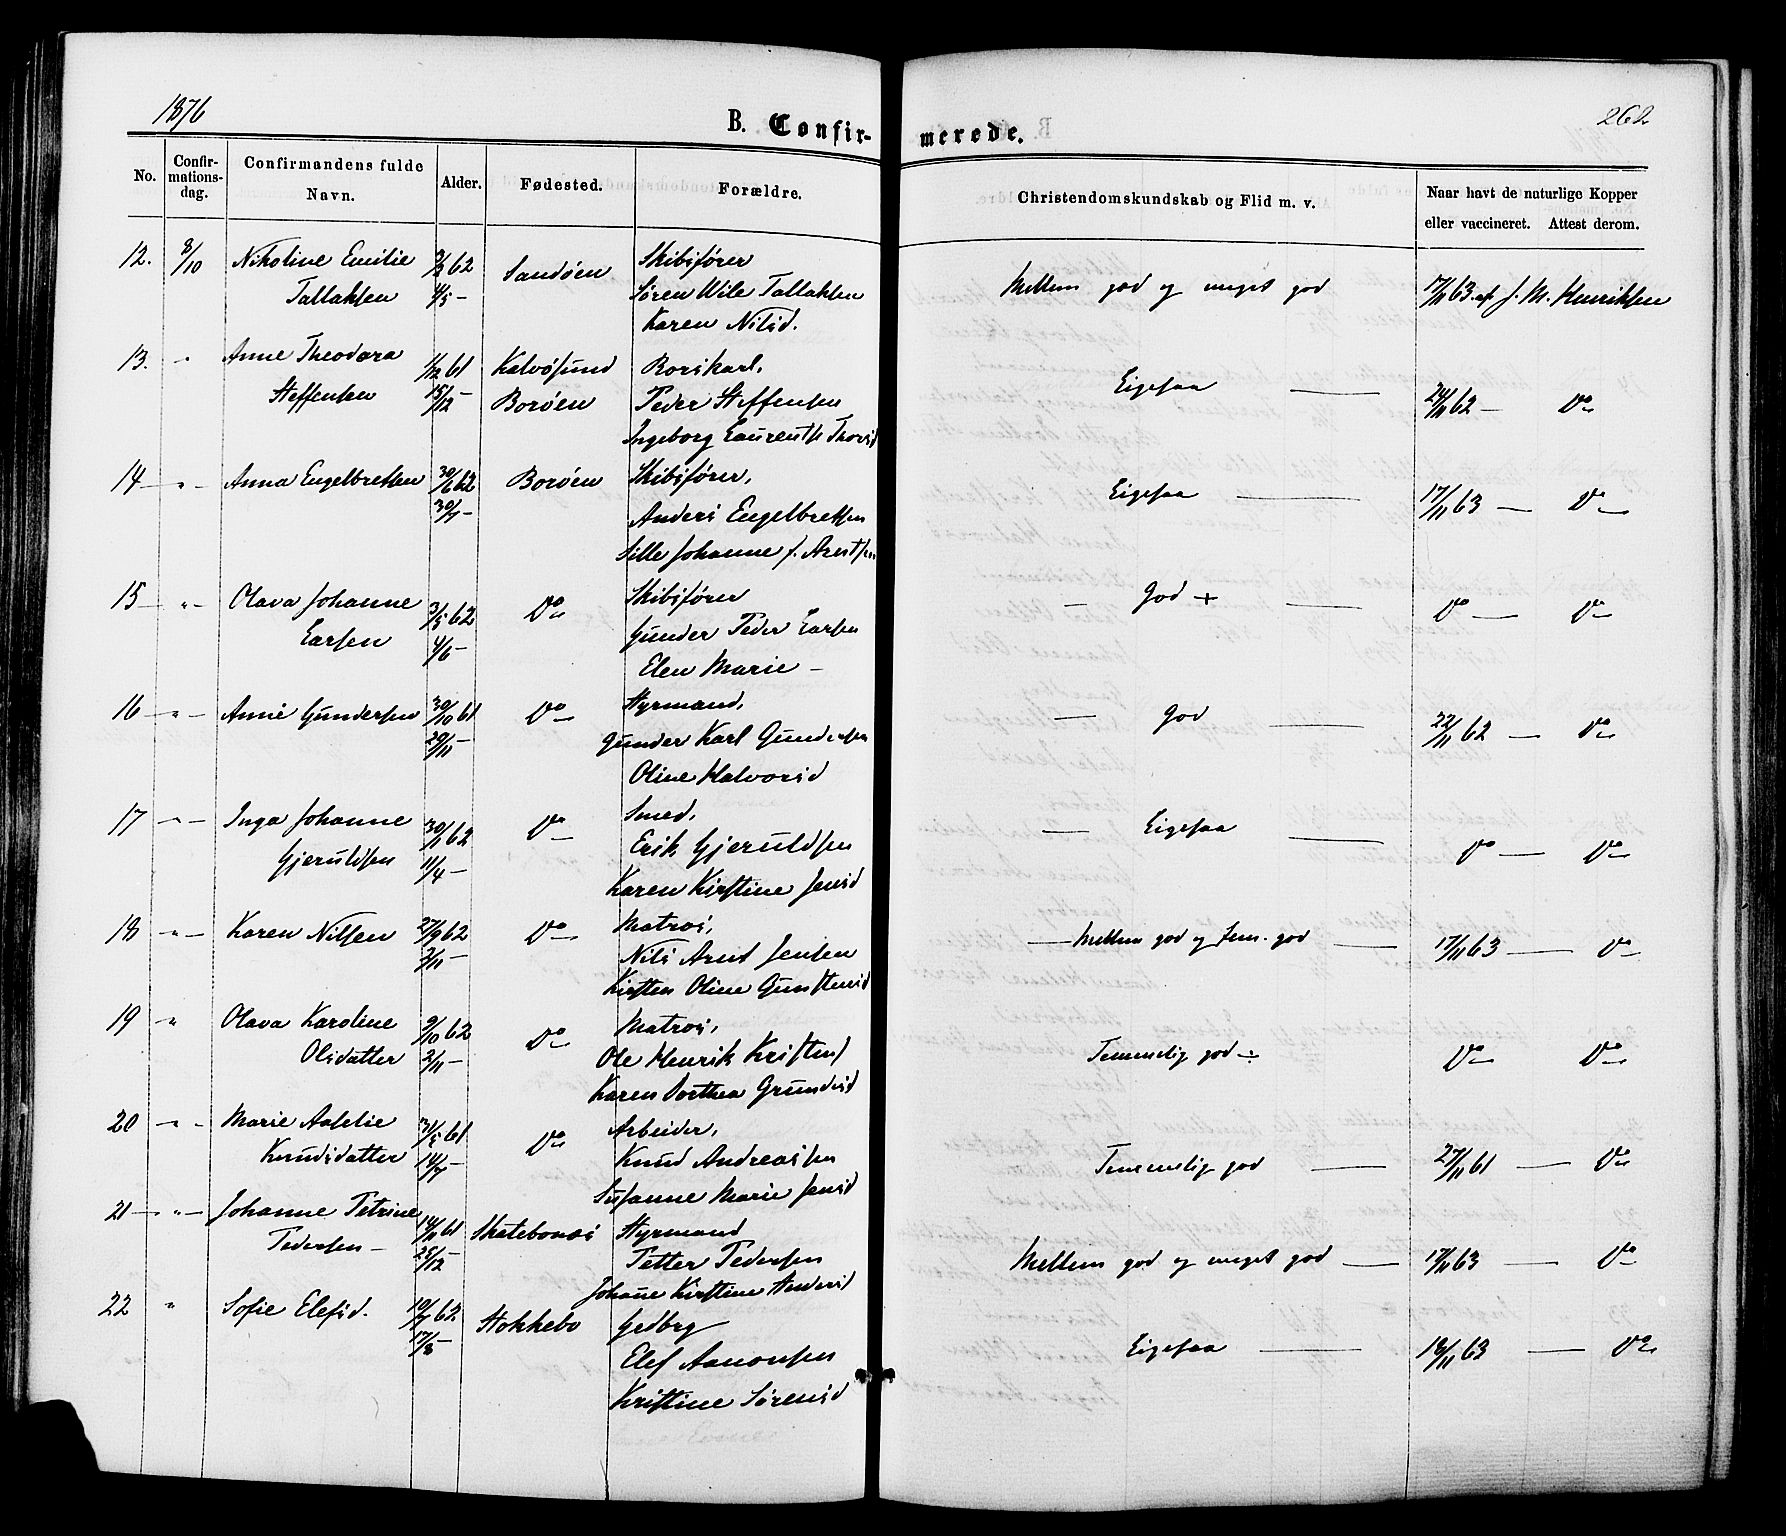 1876
B. Confir-
merede.
262
No.
Confir-
mations-
dag.
Confirmandens fulde
Navn.
Alder.
Fødested.
Forældre.
Christendomskundskab og Flid m. v.
Naar havt de naturlige Kopper
eller vaccineret. Attest derom.
12. 8/10 Nikoline Emilie 62 Sandöen Skibsförer
Tallaksen 4/5 – Sören Wile Tallaksen
Karen Nilsd.
Mellem god og meget god 17/11 63 af J. M. Henriksen
13. " Anne Theodora 61 Kalvösund
Steffensen 15/12 – Boröen Peder Steffensen
Ingeborg Laurentse Thorsd
Ligesaa — 24/11 62 — Do
14 — " — Anna Engelbretsen 30/6 62 Boröen Skibsförer,
30/7 – Anders Engelbretsen
Sille Johanne f. Arentsen
Ligesaa — 17/11 63 — Do
15 — " — Olava Johanne 3/5 62 Do Skibsförer
Larsen 4/6 – Gunder Peder Larsen
Elen Marie –
— God + — Do — Do
16 — " — Anne Gundersen 30/10 61 Do Styrmand,
29/11 Gunder Karl Gundersen
Oline Halvorsd
— God — 22/11 62 — Do
17 — " — Inga Johanne 30/1 62 Do Smed,
Gjeruldsen 11/4 – Erik Gjeruldsen
Karen Kirstine Jensd
— Ligesaa — Do — Do
18 — " — Karen Nilsen 27/9 62 Do Matros,
2/11 – Nils Arnt Jensen
Kirsten Oline Gunstensd
— Mellem god og Tem. god — 17/11 63 — Do
19 " Olava Karoline 9/10 62 Do Matros,
Olsdatter 2/11 – Ole Henrik Kristens
Karen Dorthea Grundesd
Temmelig god ÷ Do Do
20 — " — Marie Aaselie 31/5 61 Do Arbeider,
Knudsdatter 14/7 – Knud Andreassen
Susanne Marie Jensd
Temmelig god — 27/11 61 — Do
21 — " — Johanne Petrine 14/11 61 Skatebonæs Styrmand
Pedersen – 25/12 – Petter Pedersen
Johane Kirstine Andersd
Mellem god og meget god — 17/11 63 — Do
22 " Sofie Elefsd. 19/7 62 Stokkebo Gdbrg
17/8 – Elef Aanonsen
Kristine Sörensd
Ligesaa — 18/11 63 — Do